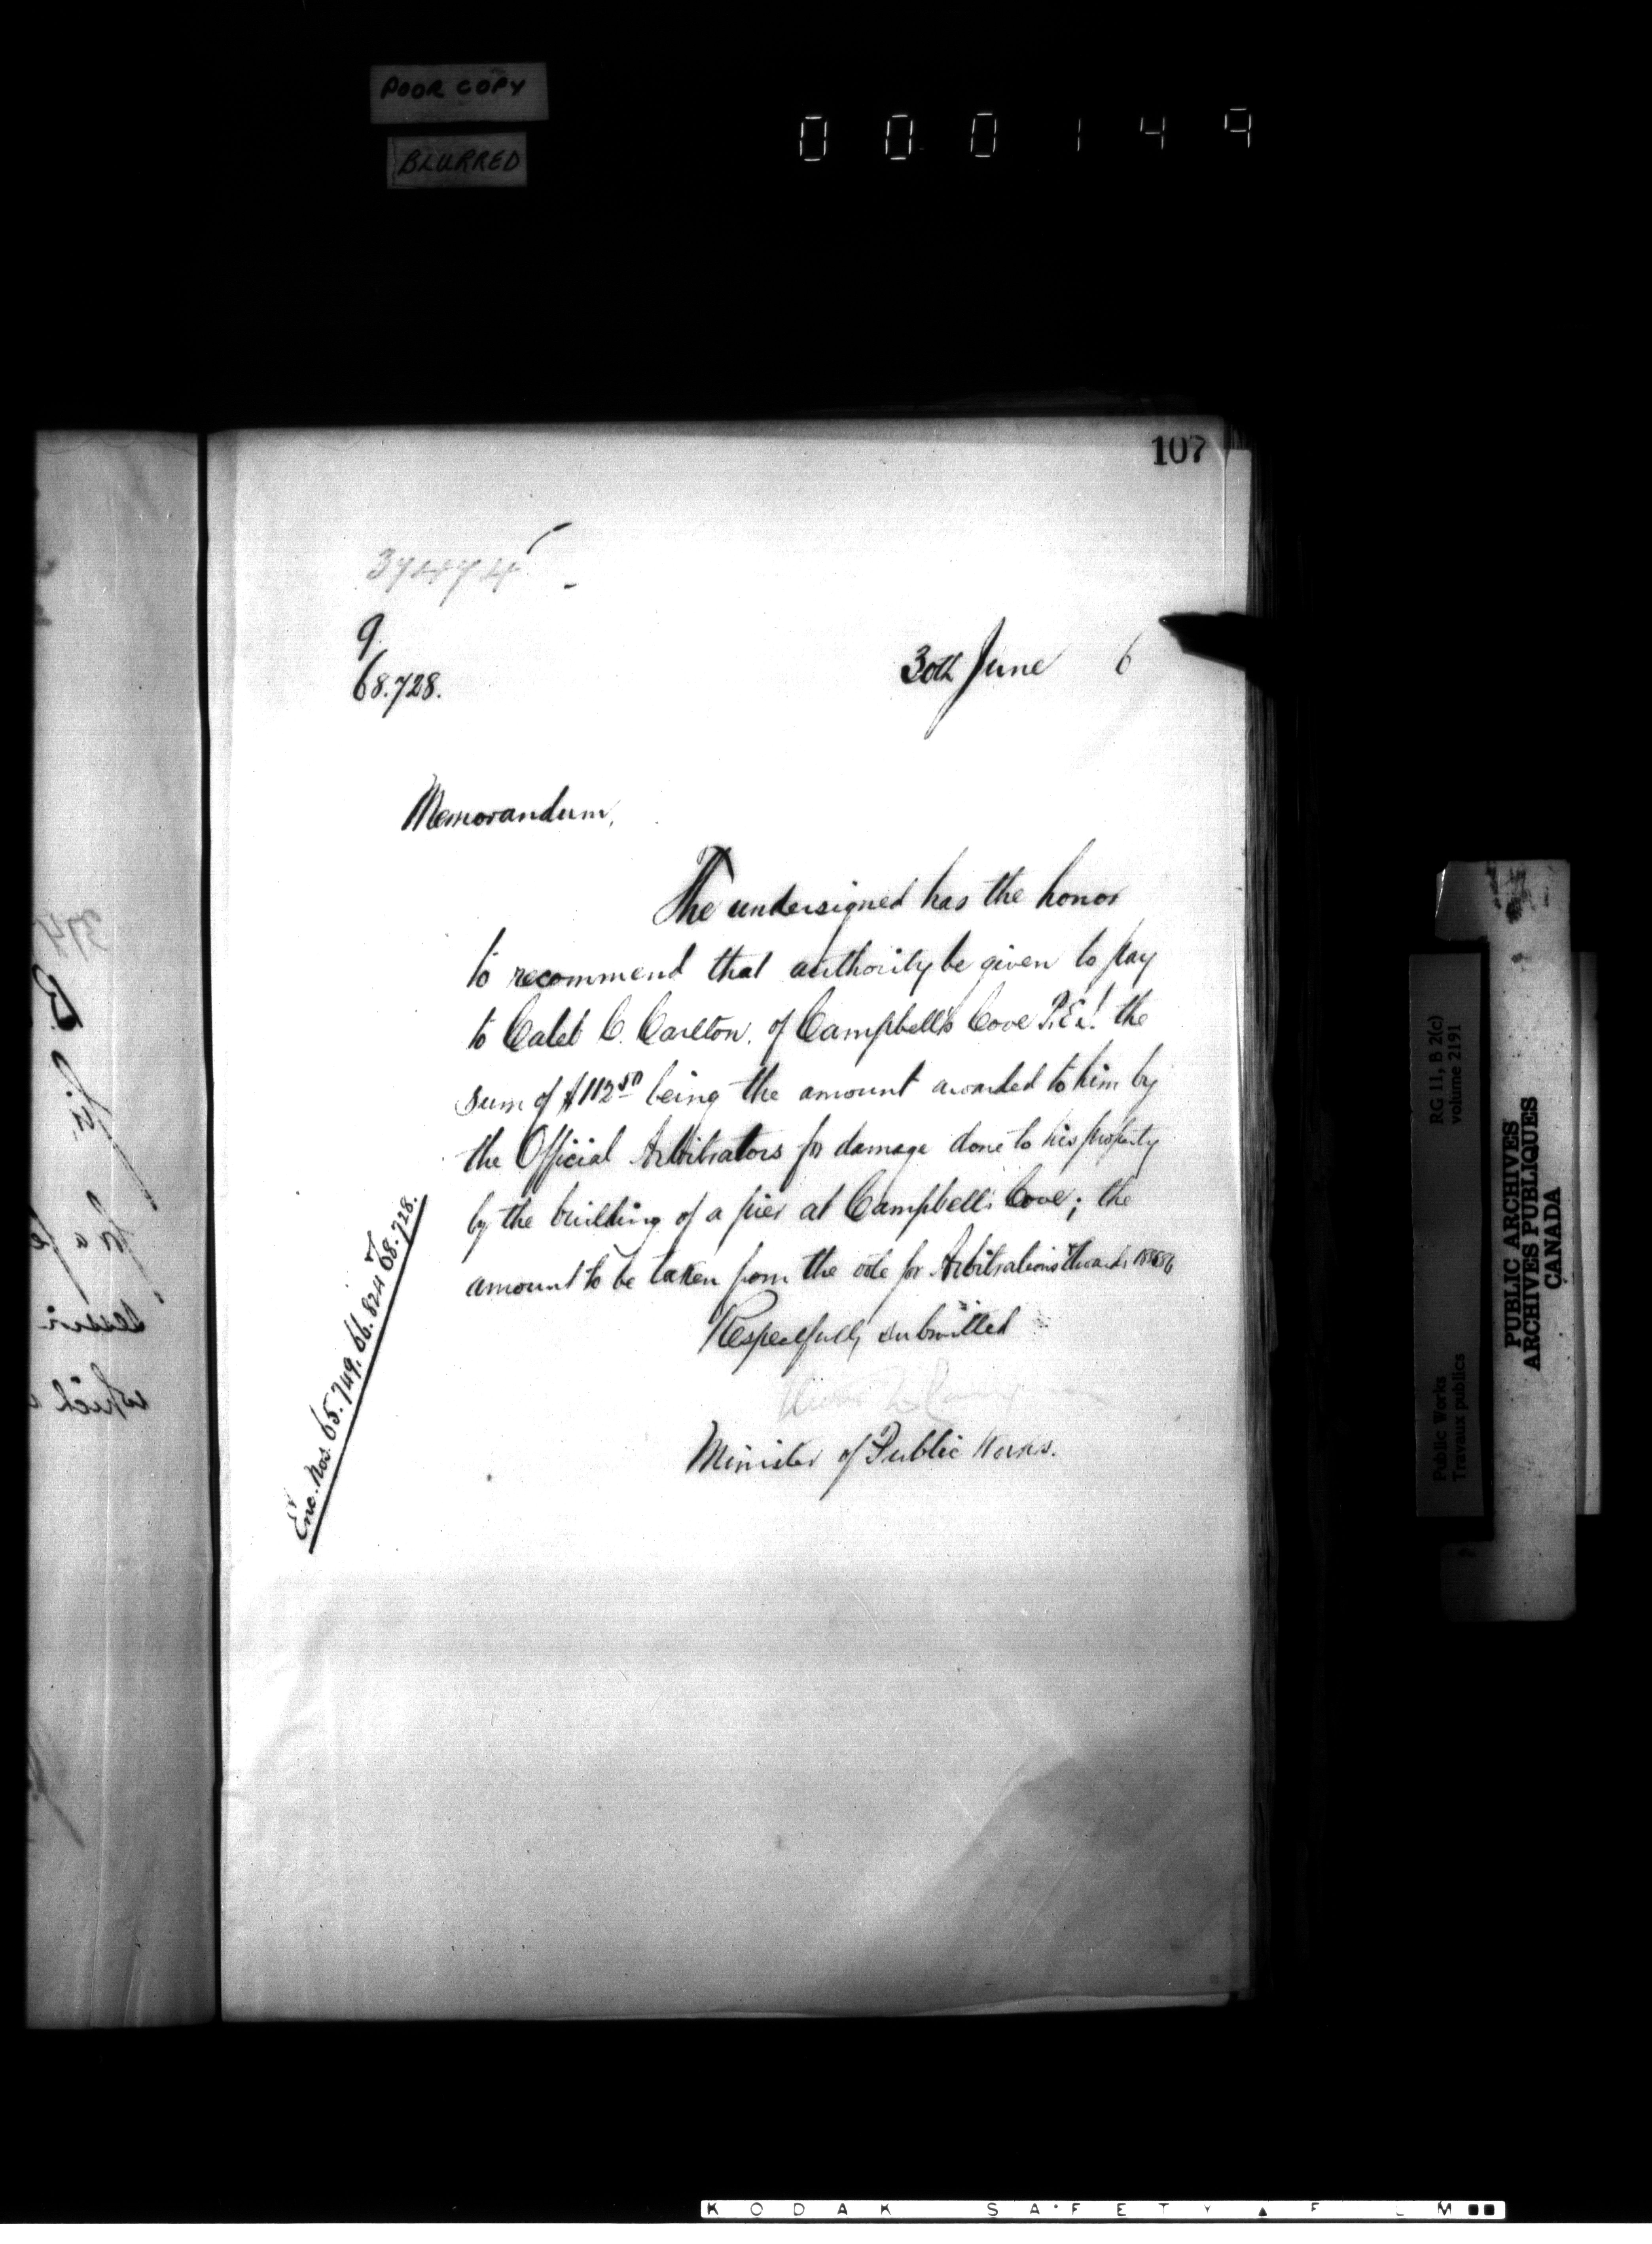 POOR COPY
BLURRED
000149
107
9.
68.728.
30th June 6
Memorandum.
The undersigned has the honor
to recommend that authority be given to pay
to Caleb C. Carlton. of Campbell's Cove P.E.I. the
sum of $112.50 being the amount awarded to him by
the Official Arbitrators for damage done to his property
by the building of a pier at Campbell's Cove; the
amount to be taken from the vote for Arbitrations & Awards 1885/86
Respectfully submitted
Minister of Public Works.
Enc. Nos. 65.749, 66.824 & 68.728.
RG 11, B 2(c)
volume 2191
Public Works
Travaux publics
PUBLIC ARCHIVES
ARCHIVES PUBLIQUES
CANADA
KODAK SAFETY